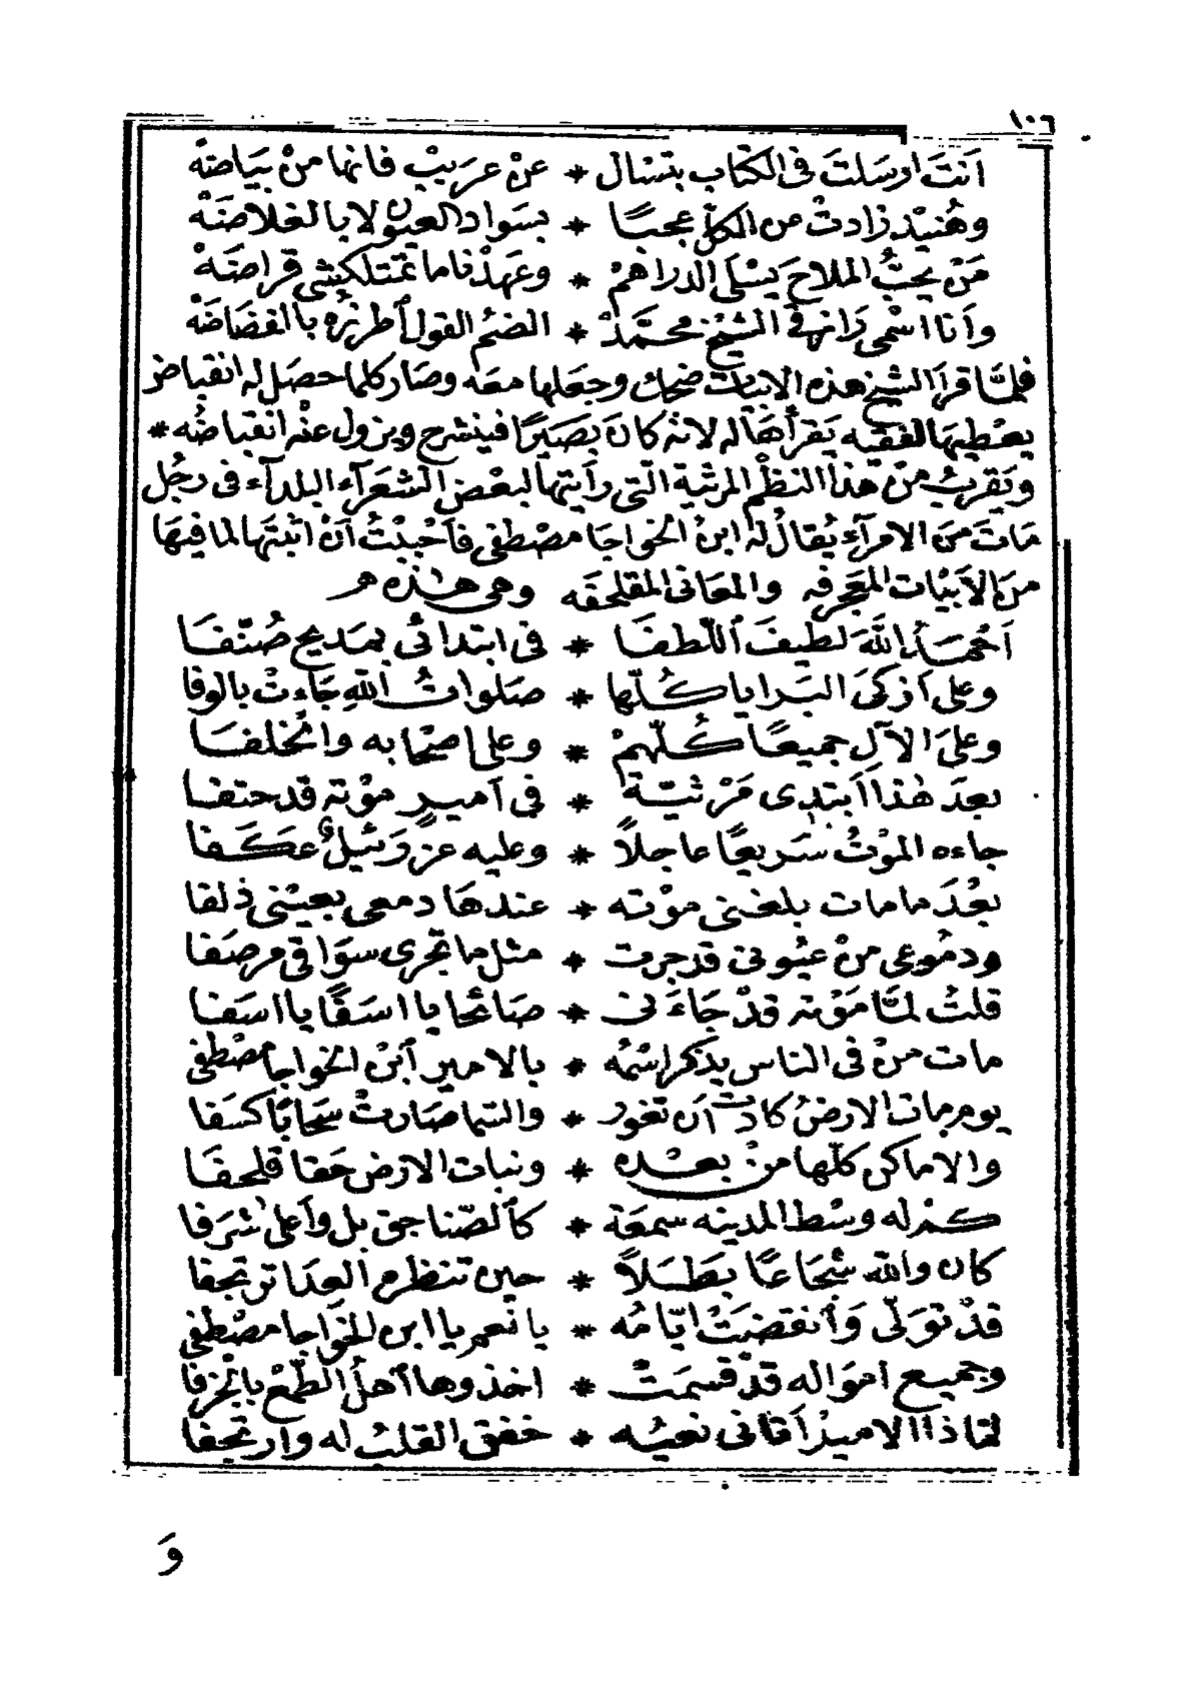 ١٠٦
اَنتَ ارسَلتَ فى الكتاب بتسْال * عن عريبْ فانها من بَياضَهْ
وهُنيْد زادتْ من الكلّ عجبًا * بسَواد العيون لا بالغلاضَهْ
مَنْ يحبُّ الملاحَ يسْلَى الدراهمْ * وعَهدْنا ما تمتلكشى قراضَهْ
وأنا اسْمى زانها فى الشيْخ محمَّدْ * الضخْم القول أطرزُه بالفضَاضَهْ
فلمَّا قرا الشيخ هذه الابيات ضحك وجعلها معَه وصَار كلما حصَل له انقباض
يعْطيهَا لفقيه يَقرأهَا له لانه كانَ بصَيرًا فينشرح ويزول عنْه انقباضُه *
ويَقربُ منْ هَذا النظْم المرثية الّتى رأيتها لبعْض الشعَرآء البلدآء فى رجُل
مَاتَ منَ الامرآءِ يُقالُ لهُ ابنُ الخواجَا مصْطفى فأحْببْتُ أنْ اثبتَهَا لما فيهَا
منَ الأبيَات المعَجرفه والمعَانى المقلحفَه وهى هذه
اَحْمَدُ اللهَ لطيفَ اللّطفَا * فى ابتدائى بمَديح صُنّفَا
وعلى أزكىَ البَرايا كُلّها * صَلواتُ اللهِ جَاءتْ بالوفا
وعلىَ الآلِ جميعًا كُلّهمْ * وعلى اصحَابه والخُلفَا
بعدَ هٰذا أبتدِى مَرْثيّة * فى اَميرٍ موْته قد حتفا
جاءه الموْتُ سَريعًا عاجلاً * وعليه عزرَئيلُ عَكَفا
بعْدَ ما مات بلغنى موْته * عندهَا دمعى بعيْنى ذلفا
ودمُوعى منْ عيُونى قد جرت * مثل ما تجرى سوَاقى مرصَفا
قلتُ لمَّا مَوْته قدْ جَاءَنى * صَائحا يا اسَفًا يا اسَفا
مات منْ فى الناس يذكر اسْمُه * بالامير ابْن الخواجا مصْطفى
يوم مات الارضُ كادت أن تغور * والسّما صَارتْ سحَابًا كسَفا
والاماكن كلّها منْ بعْده * ونبات الارْض حَقا قلحفَا
كمْ له وسْط المدينه سمعَة * كالصّناجق بل وأعلى شرَفا
كان والله شجَاعًا بطَلاً * حين تنظره العدَا ترتجفا
قدْ تولّى وَانقضَتْ ايّامُه * يا نعم يا ابن الخوَاجا مصْطفى
وجميع امْوَاله قدْ قسمَتْ * اخذوها أهلُ الطّمْع بالجَزفا
لمّا ذا الاميرْ أتانى نعيُه * خفق القلبُ له وارتجَفا
وَ